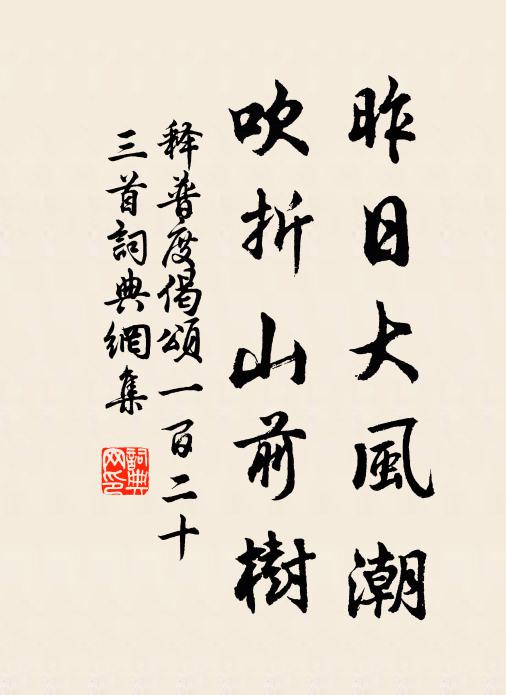 昨日大風潮
吹折山前樹
释普度偈頌一百二十
三首詞典網集
詞典
网印